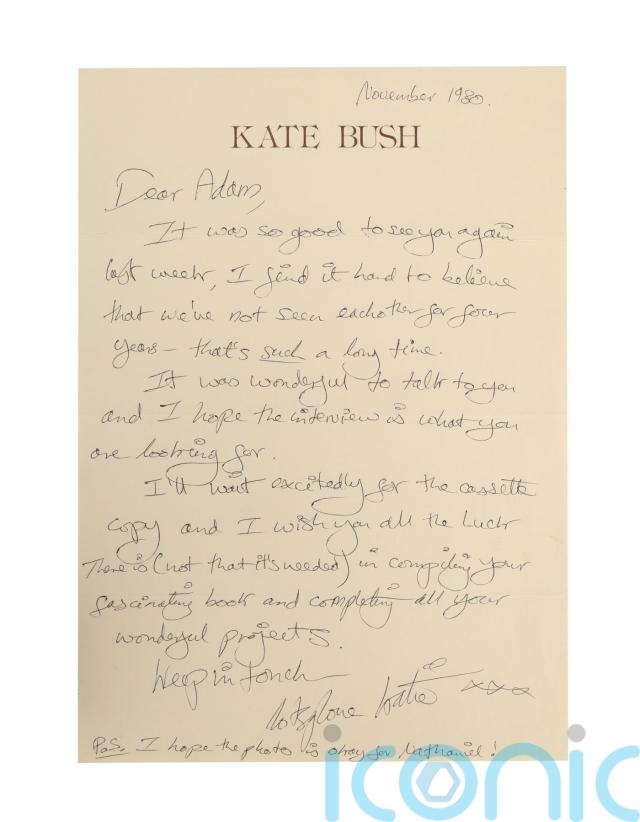 November 1980.
KATE BUSH
Dear Adam,
It was so good to see you again
last week, I find it hard to believe
that we've not seen eachother for four
years - that's such a long time.
It was wonderful to talk to you
and I hope the interview is what you
are looking for.
I'll wait excitedly for the cassette
copy and I wish you all the luck
There is (not that it's needed) in compiling your
fascinating book and completing all your
wonderful projects.
Keep in touch
Lots of love Katie xxx
P.S. I hope the photo is okay for Nathaniel!
iconic